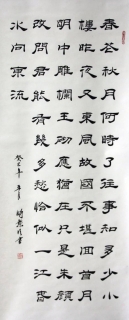 春花秋月何時了往事知多少小
樓昨夜又東風故國不堪回首月
明中雕欄玉砌應猶在只是朱顏
改問君能有幾多愁恰似一江春
水向東流
癸巳年
書